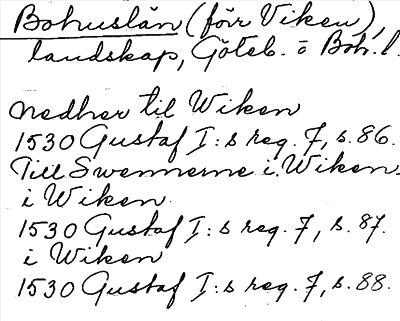 Bohuslän (förr Viken),
landskap, Göteb. o Boh. l.
Nedher til Wiken
1530 Gustaf I:s reg. 7, s. 86.
Till Swennerne i Wiken
i Wiken.
1530 Gustaf I:s reg. 7, s. 87.
i Wiken
1530 Gustaf I:s reg. 7, s. 88.